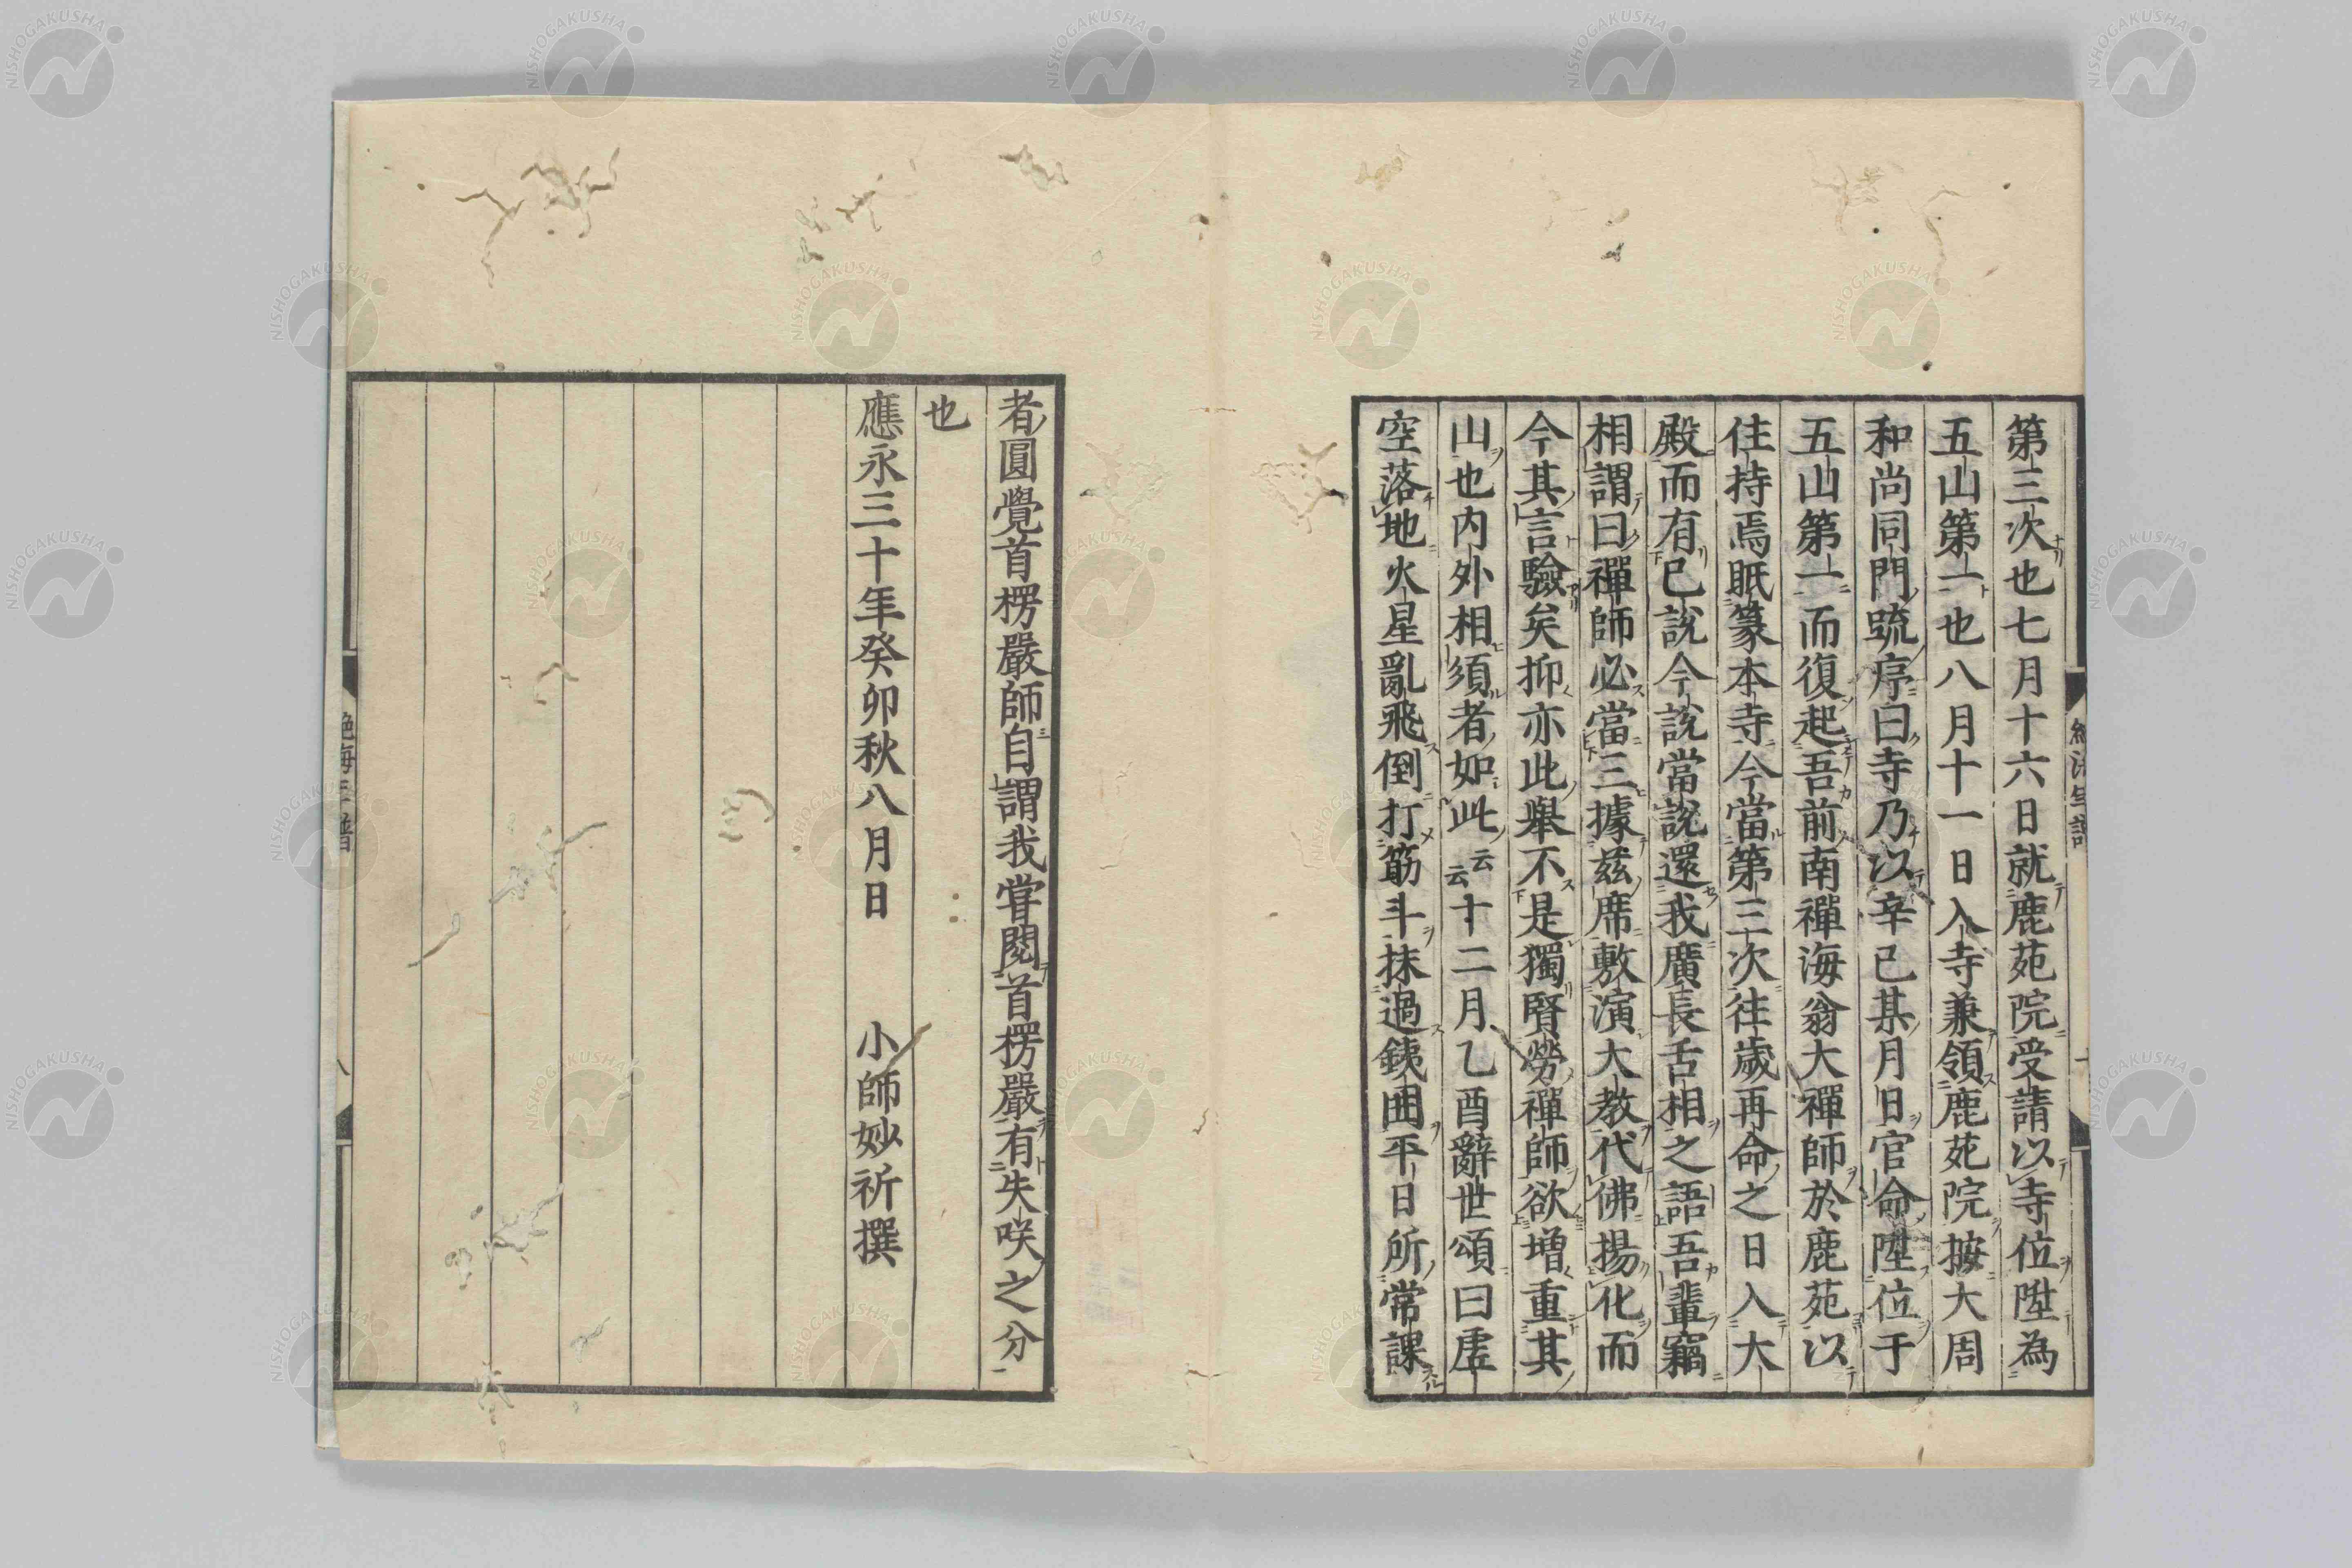 第三次也七月十六日就鹿苑院受請以寺位陞為
五山第一也八月十一日入寺兼領鹿苑院按大周
和尚同門䟽序曰寺乃以辛巳某月日官命陞位于
五山第一而復起吾前南禪海翁大禪師於鹿苑以
住持焉眂篆本寺今當第三次往歲再命之日入大
殿而有已說今說當說還我廣長舌相之語吾輩竊
相謂曰禪師必當三據茲席敷演大教代佛揚化而
今其言驗矣抑亦此舉不是獨賢勞禪師欲增重其
山也内外相須者如此云云十二月乙酉辭世頌曰虛
空落地火星亂飛倒打筋斗抹過鐵囲平日所常課
者圓覺首楞嚴師自謂我甞閱首楞嚴有失咲之分
也
應永三十年癸卯秋八月日 小師妙祈撰